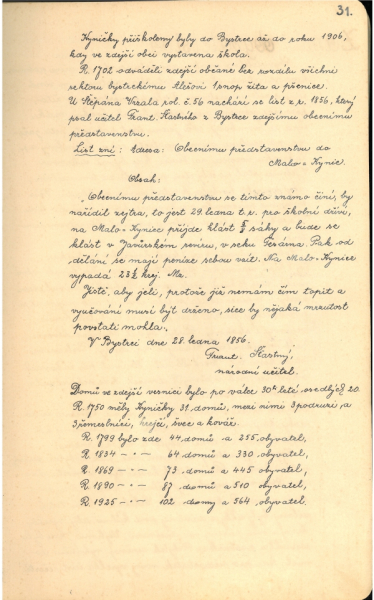 31.
Kyničky přiškoleny byly do Bystrce až do roku 1906,
kdy ve zdejší obci vystavena škola.
R. 1702 odváděli zdejší občané bez rozdílu všichni
rektoru bystrckému kleřovi 1 snop žita a pšenice.
U Štěpána Vrzala pol. č. 56 nachází se list z r. 1856, který
psal učitel Frant. Šťastný z Bystrce zdejšímu obecnímu
představenstvu.
List zní: Adresa: Obecnímu představenstvu do
Malo-Kynic.
Obsah:
„Obecnímu představenstvu se tímto známo činí, by
nařídil zejtra, to jest 29. ledna t. r. pro školní dříví,
na Malo-Kynice přijde klást sáhy a bude se
klást v Javůrském revíru, v seku Pak od
dělání se mají peníze sebou vzít. Na Malo-Kynice
vypadá 23 krej. Mz.
Jistě, aby jeli, protože již nemám čím topit a
vyučování musí být drženo, sice by nějaká mrzutost
povstati mohla.
V Bystrci dne 28. ledna 1856.
Frant. Šťastný,
národní učitel.
Domů ve zdejší vesnici bylo po válce 30ti leté, osedlých 20.
R. 1750 měly Kyničky 31 domů, mezi nimi 3 podruzi a
3 řemeslníci, krejčí, švec a kovář.
R. 1799 bylo zde 44 domů a 255 obyvatel,
R. 1834 — · — 64 domů a 330 obyvatel,
R. 1869 — · — 73 domů a 445 obyvatel,
R. 1890 — · — 87 domů a 510 obyvatel,
R. 1925 — · — 102 domy a 564 obyvatel.